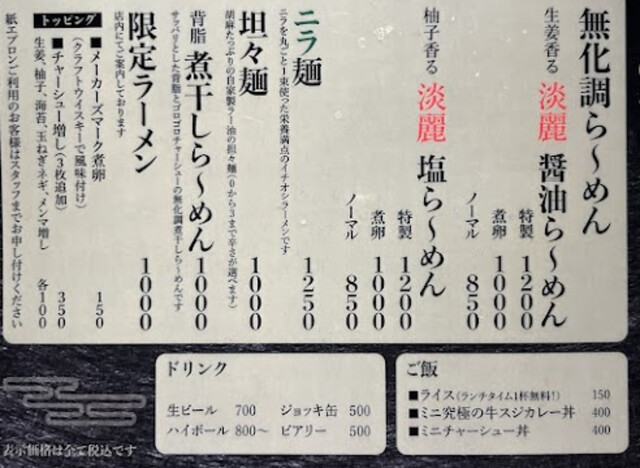 無化調ら〜めん
生姜香る 淡麗 醤油ら〜めん
特製 1200
煮卵 1000
ノーマル 850
柚子香る 淡麗 塩ら〜めん
特製 1200
煮卵 1000
ノーマル 850
ニラ麺 1250
ニラを丸ごと1束使った栄養満点のイチオシラーメンです
坦々麺 1000
胡麻たっぷりの自家製ラー油の坦々麺(0から3まで辛さが選べます)
背脂 煮干しら〜めん 1000
サッパリとした背脂とゴロゴロチャーシューの無化調煮干しら〜めんです
限定ラーメン 1000
店内にてご案内しております
トッピング
■メーカーズマーク煮卵 150
(クラフトウイスキーで風味付け)
■チャーシュー増し(3枚追加) 350
生姜、柚子、海苔、玉ねぎネギ、メンマ増し 各100
紙エプロンご利用のお客様はスタッフまでお申し付けください
ドリンク
生ビール 700 ジョッキ缶 500
ハイボール 800〜 ビアリー 500
ご飯
■ライス(ランチタイム1杯無料!) 150
■ミニ究極の牛スジカレー丼 400
■ミニチャーシュー丼 400
表示価格は全て税込です